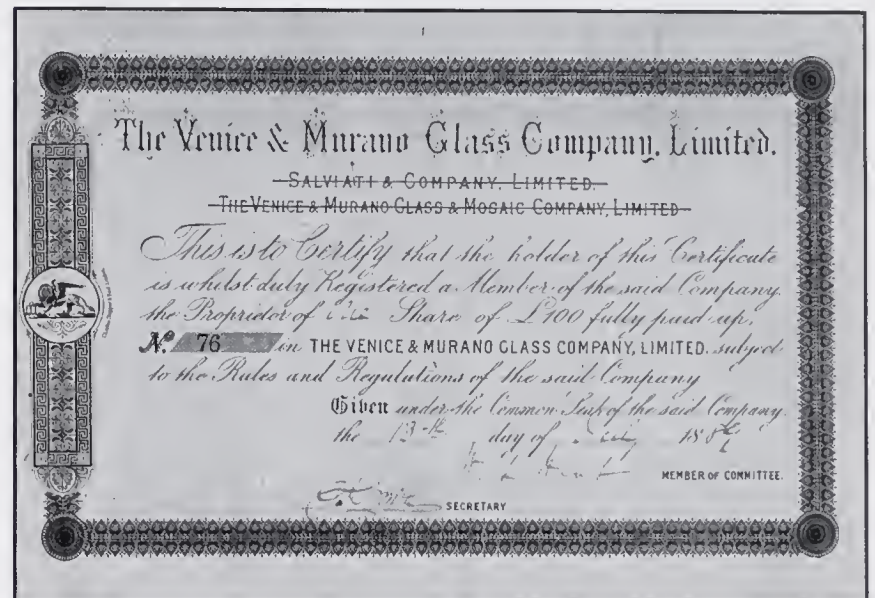 The Venice & Murano Glass Company, Limited.
SALVIATI & COMPANY, LIMITED.
THE VENICE & MURANO GLASS & MOSAIC COMPANY, LIMITED
This is to Certify that the holder of this Certificate
is whilst duly Registered a Member of the said Company
the Proprietor of Share of £100 fully paid up,
No. 76 in THE VENICE & MURANO GLASS COMPANY, LIMITED. subject
to the Rules and Regulations of the said Company
Given under the Common Seal of the said Company
the 13th day of 188
MEMBER OF COMMITTEE.
SECRETARY